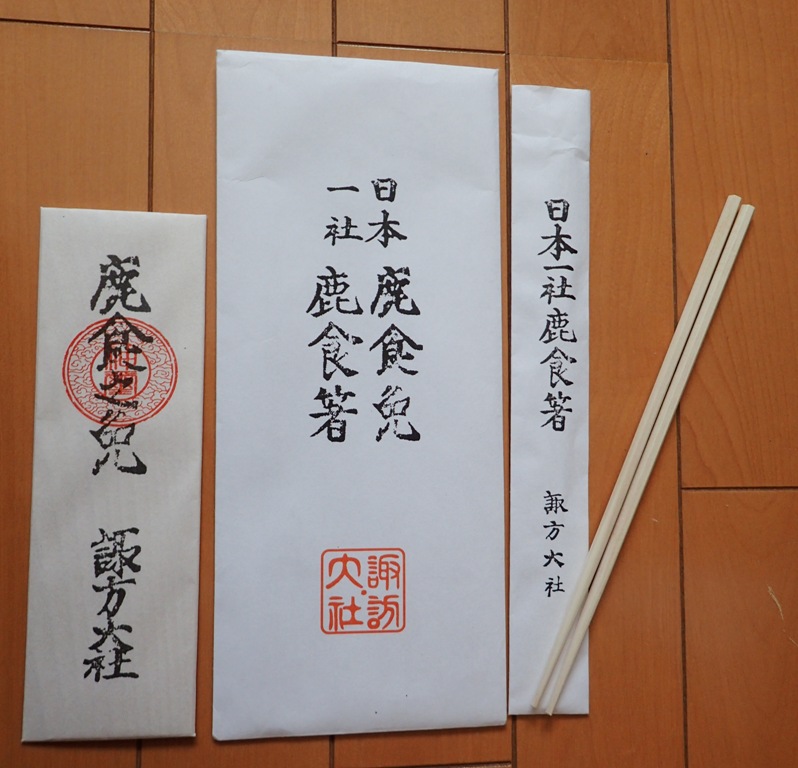 鹿食之免
諏方大社
日本
一社
鹿食免
鹿食箸
諏訪
大社
日本一社鹿食箸
諏方大社